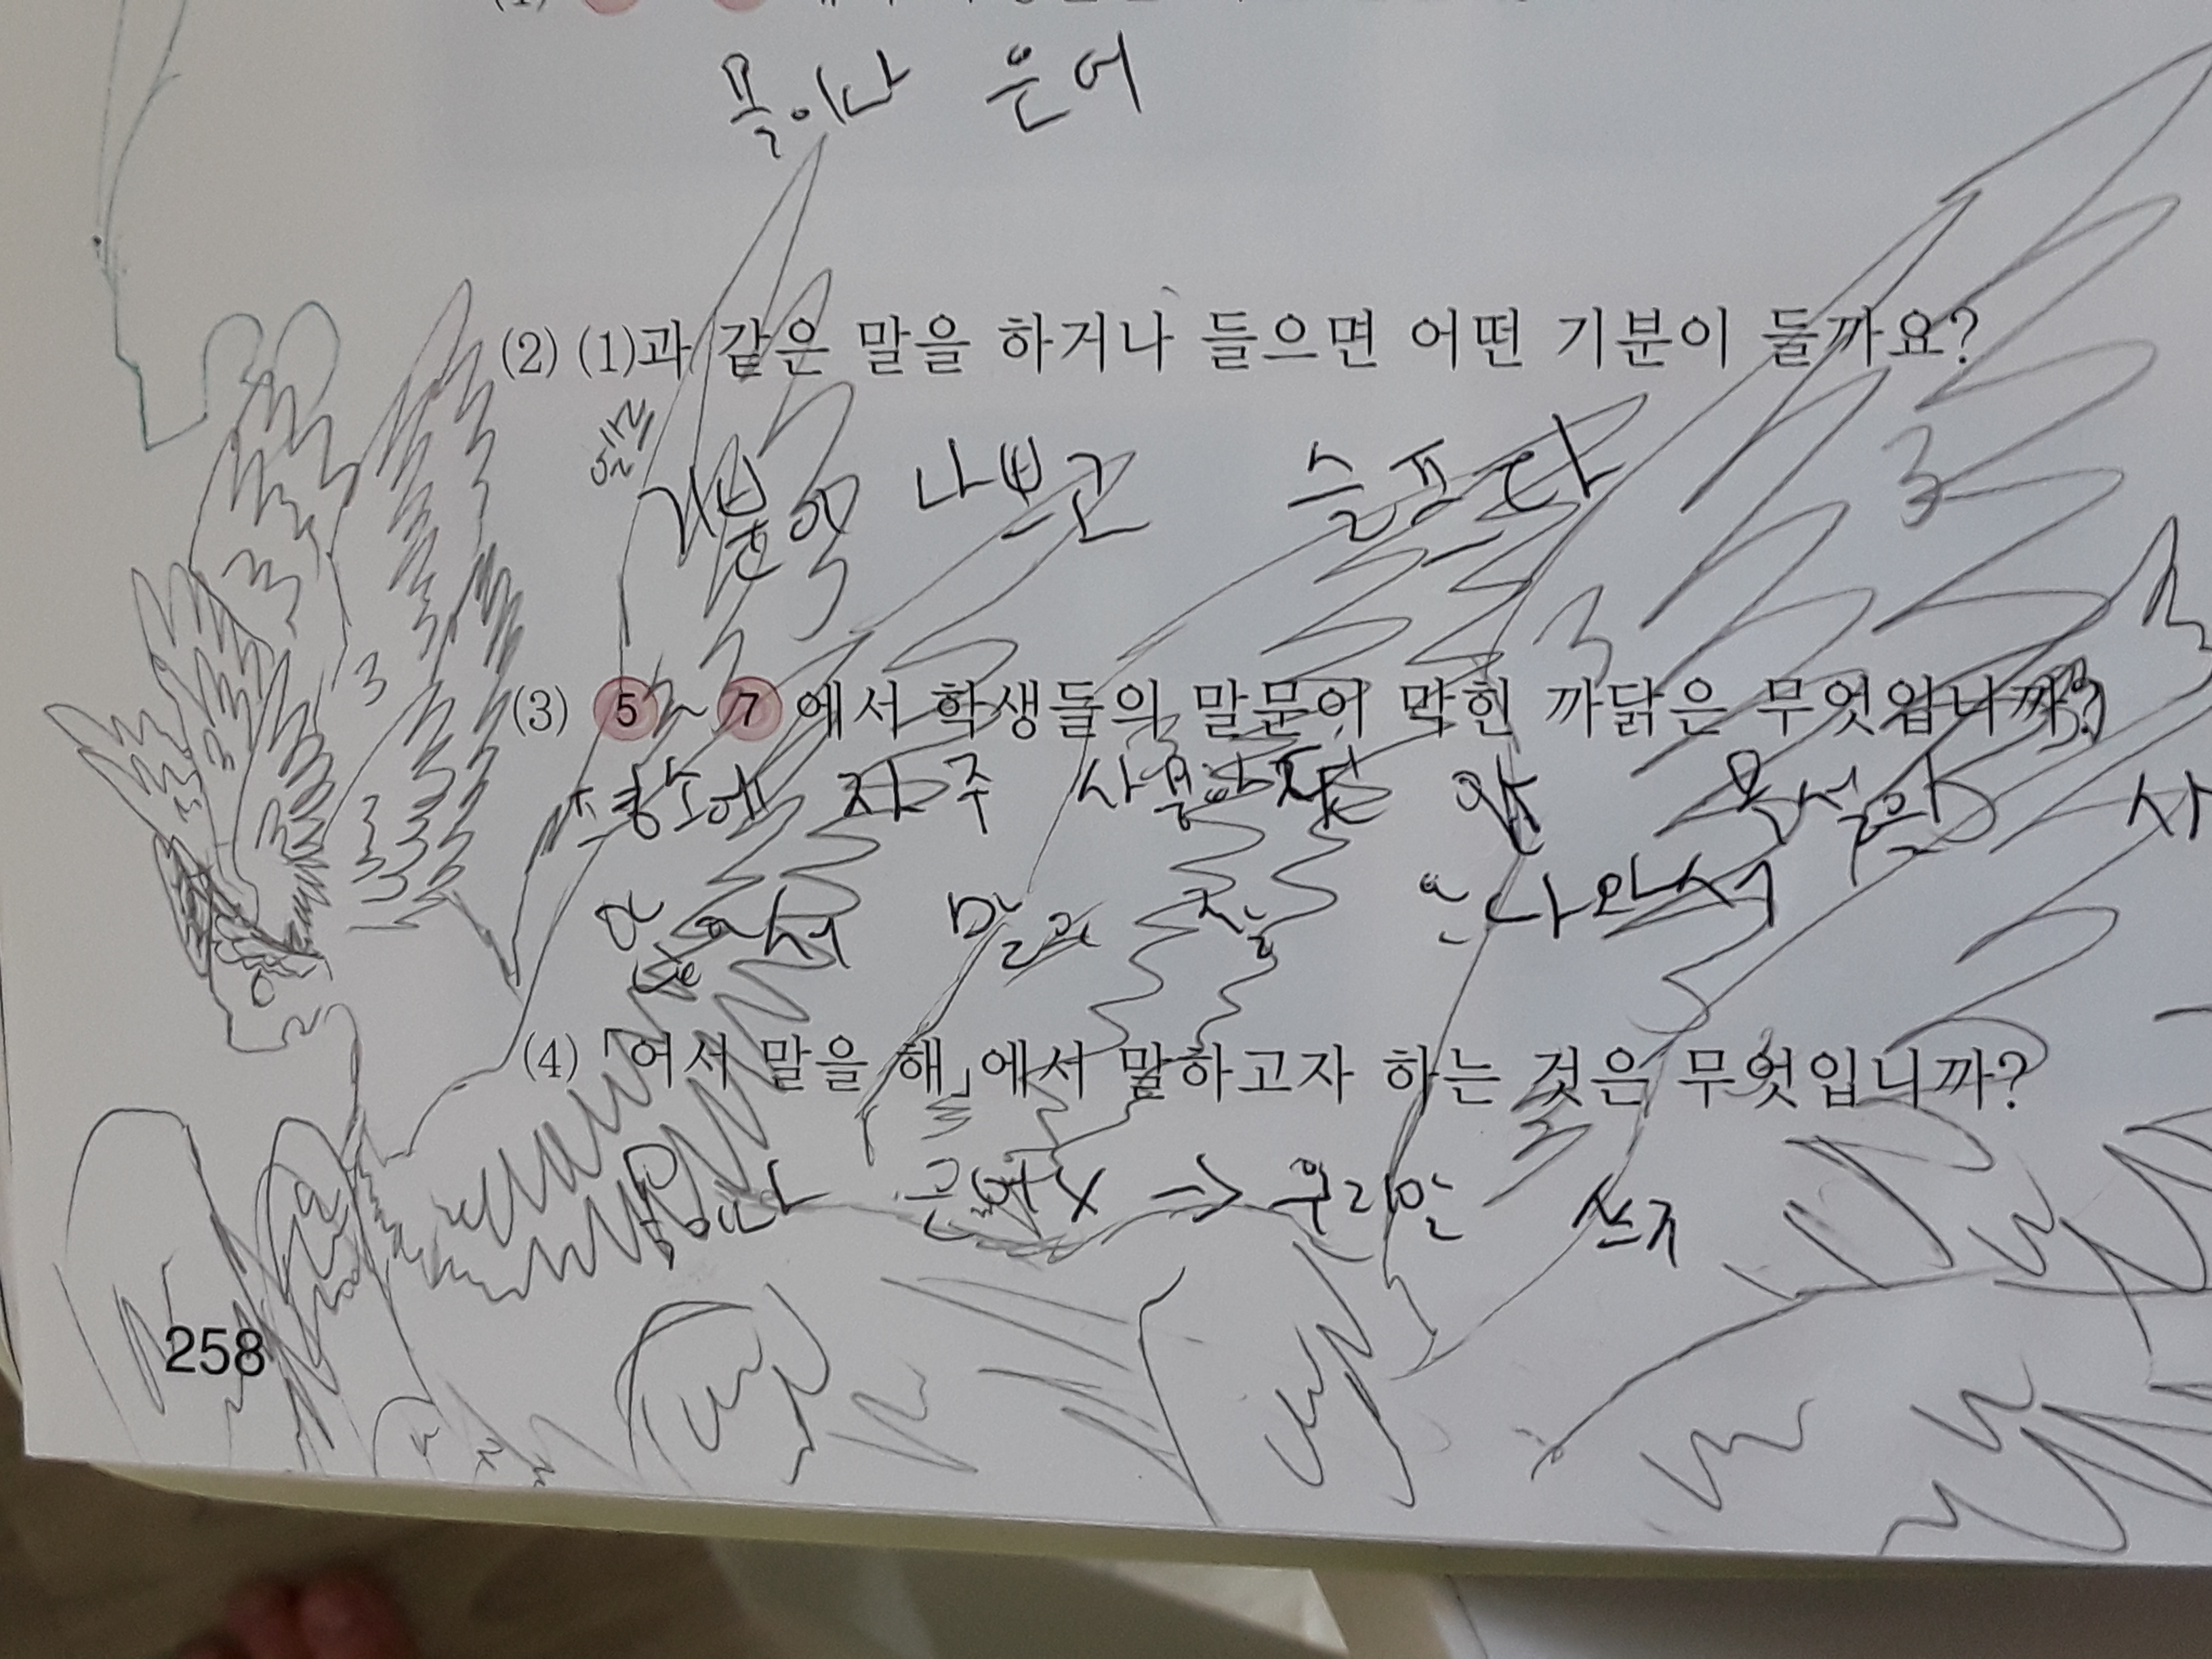 욕이나 은어
(2) (1)과 같은 말을 하거나 들으면 어떤 기분이 들까요?
기분이 나쁘고 슬프다
(3) 5~7에서 학생들의 말문이 막힌 까닭은 무엇입니까?
평소에 자주 사용하던 욕설을 사
않아서 말이 잘 안나와서
(4) 「어서 말을 해」에서 말하고자 하는 것은 무엇입니까?
욕이나 은어X → 우리말 쓰자
258